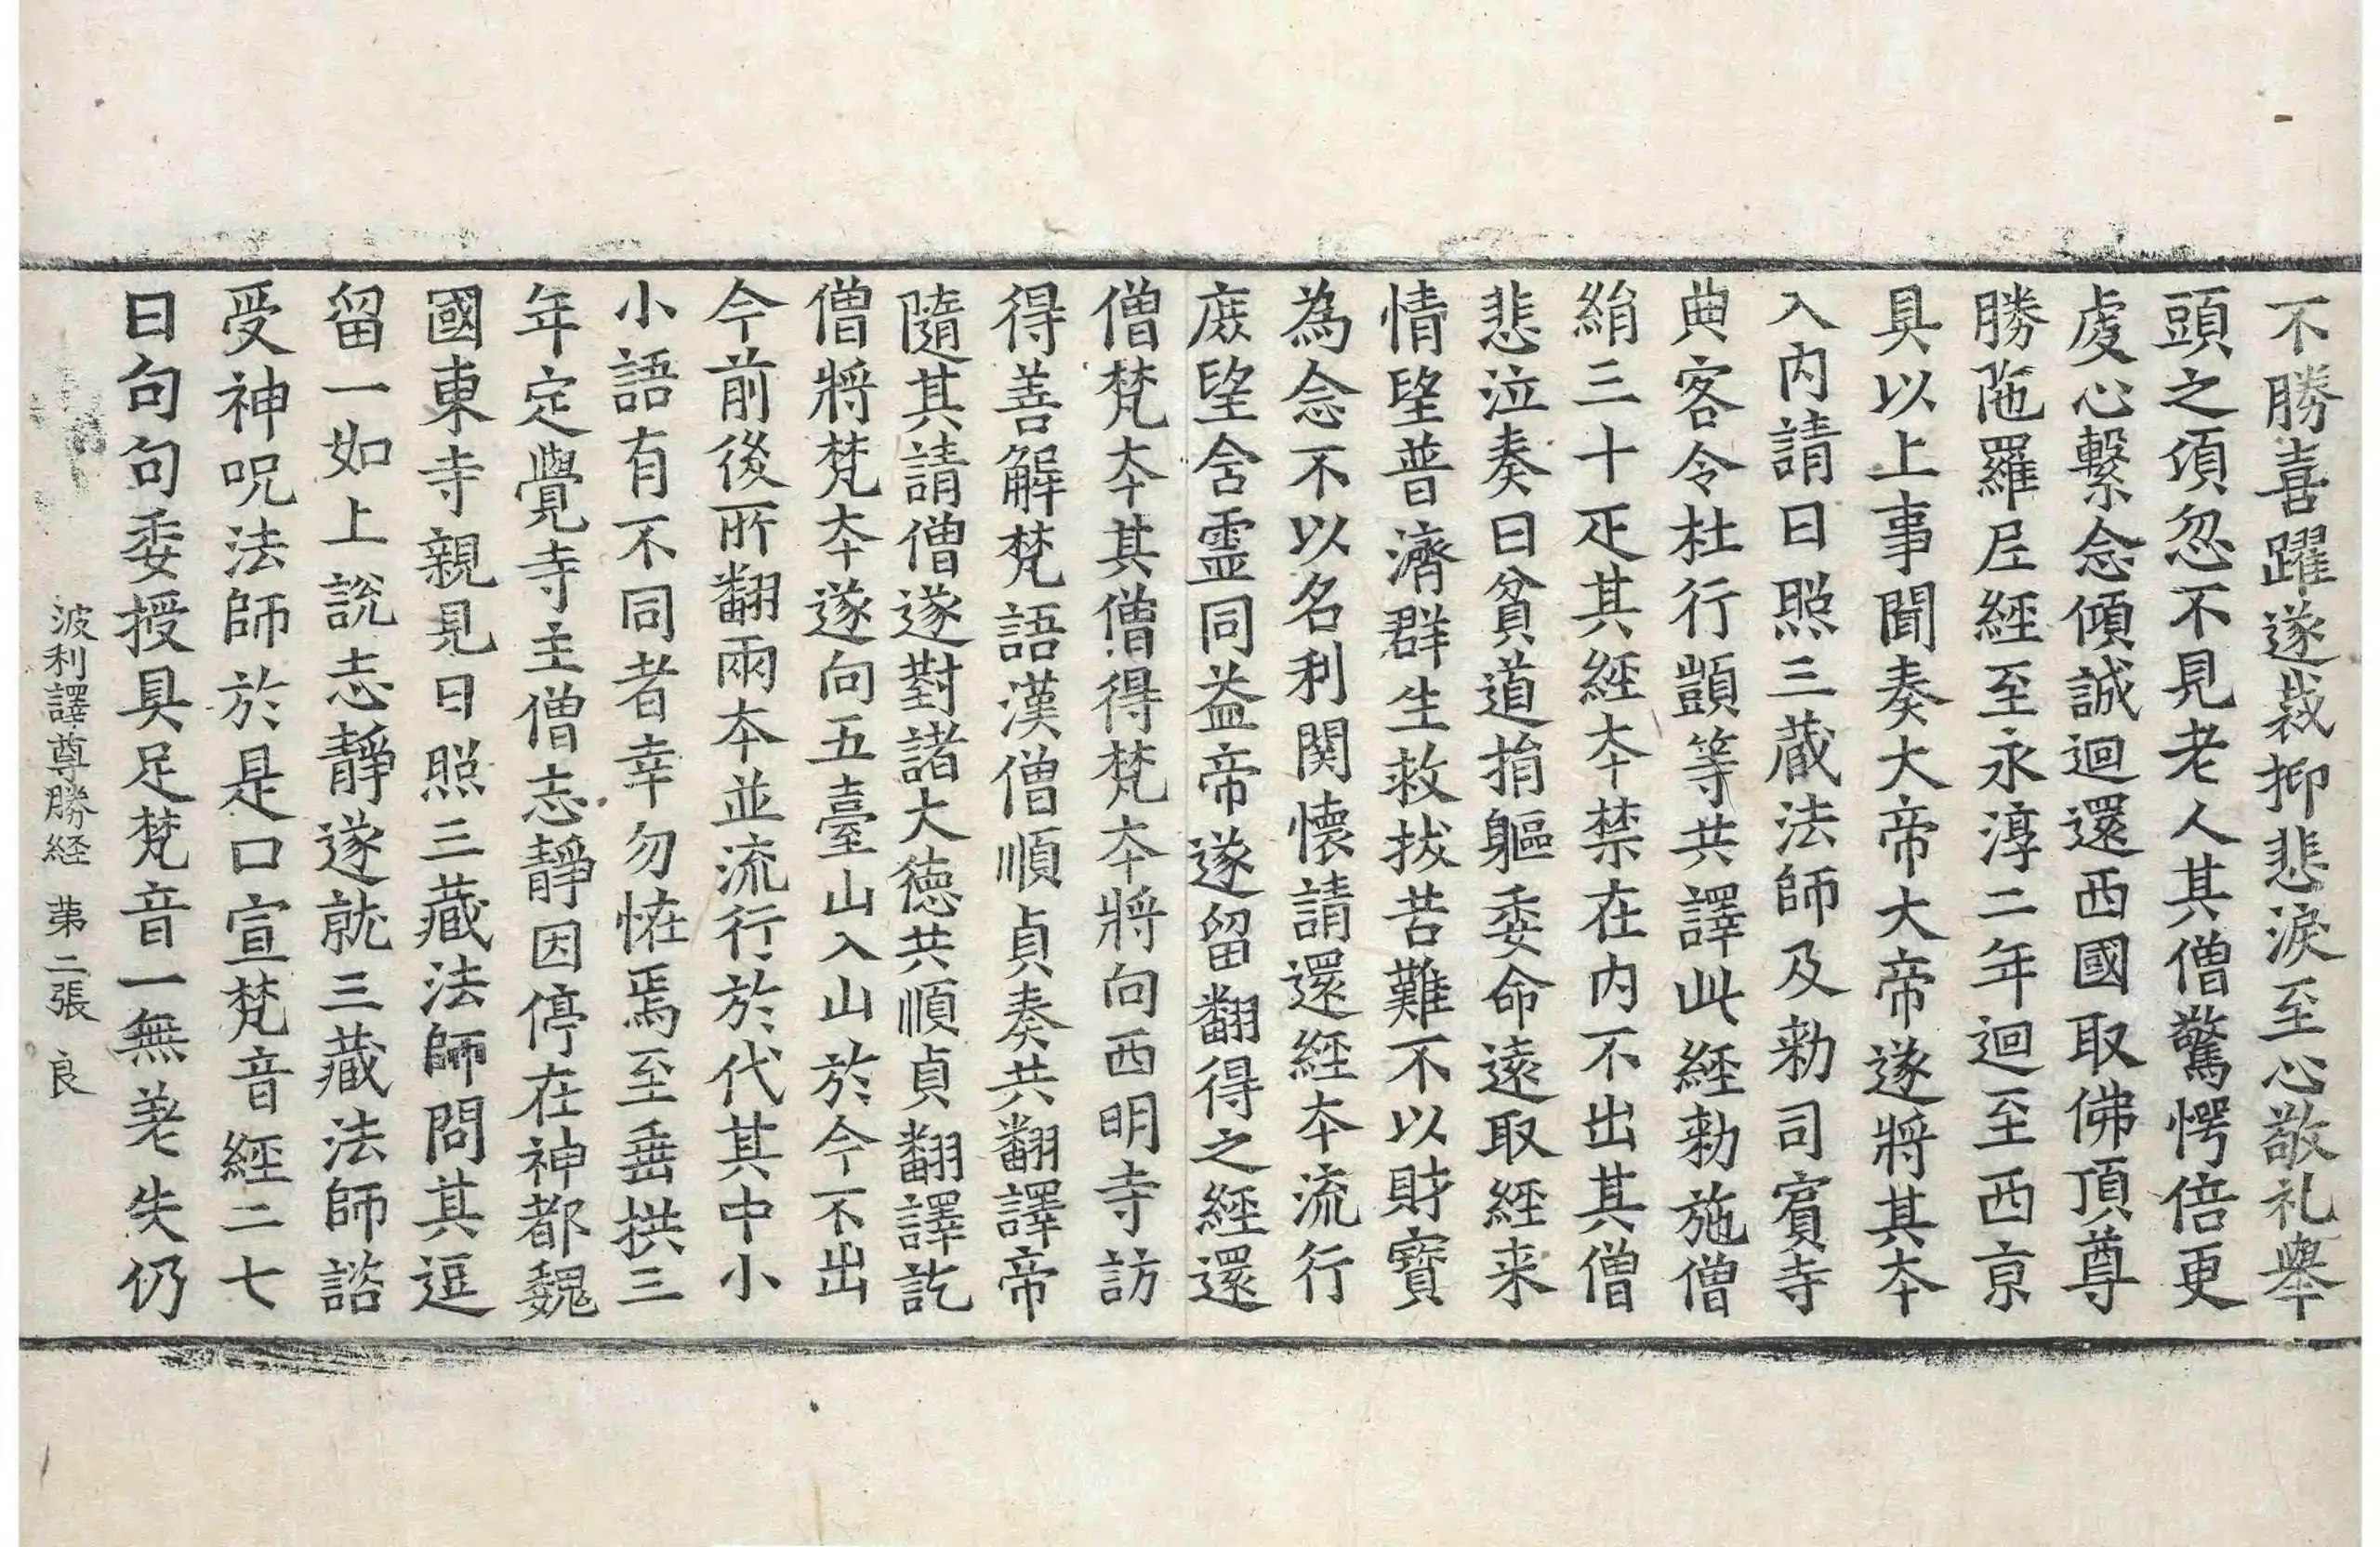 不勝喜躍遂裁抑悲淚至心敬礼舉
頭之湏忽不見老人其僧驚愕倍更
虔心繫念傾誠迴還西國取佛頂尊
勝陁羅尼經至永淳二年迴至西京
具以上事聞奏大帝大帝遂將其夲
入内請日照三藏法師及勑司賔寺
典客令杜行顗等共譯此經勑施僧
絹三十疋其經夲禁在内不出其僧
悲泣奏曰貧道捐軀委命遠取經来
情望普濟群生救拔苦難不以財寶
為念不以名利関懷請還經夲流行
庶望含霊同益帝遂留翻得之經還
僧梵夲其僧得梵夲將向西明寺訪
得善解梵語漢僧順貞奏共翻譯帝
隨其請僧遂對諸大德共順貞翻譯訖
僧將梵夲遂向五臺山入山於今不出
今前後所翻兩夲並流行於代其中小
小語有不同者幸勿恠焉至垂拱三
年定覺寺主僧志靜因停在神都魏
國東寺親見日照三藏法師問其逗
留一如上說志靜遂就三藏法師諮
受神呪法師於是口宣梵音經二七
日句句委授具足梵音一無差失仍
波利譯尊勝経　苐二張　良